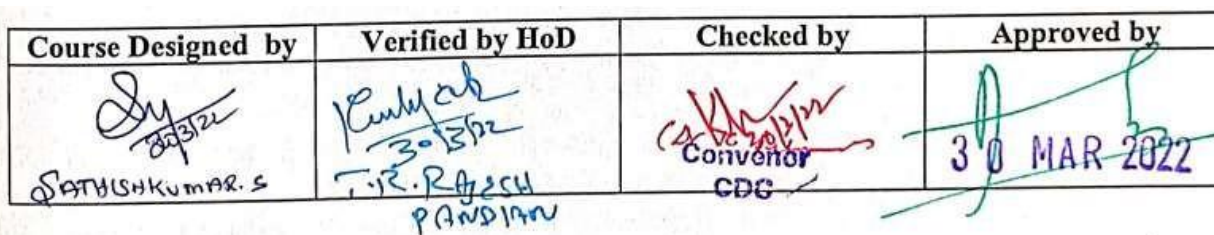 Course Designed by
Verified by HoD
Checked by
Approved by
30/3/22
SATHISHKUMAR. S
30/3/22
T.R. RAJESH
PANDIAN
Convenor
CDC
30 MAR 2022